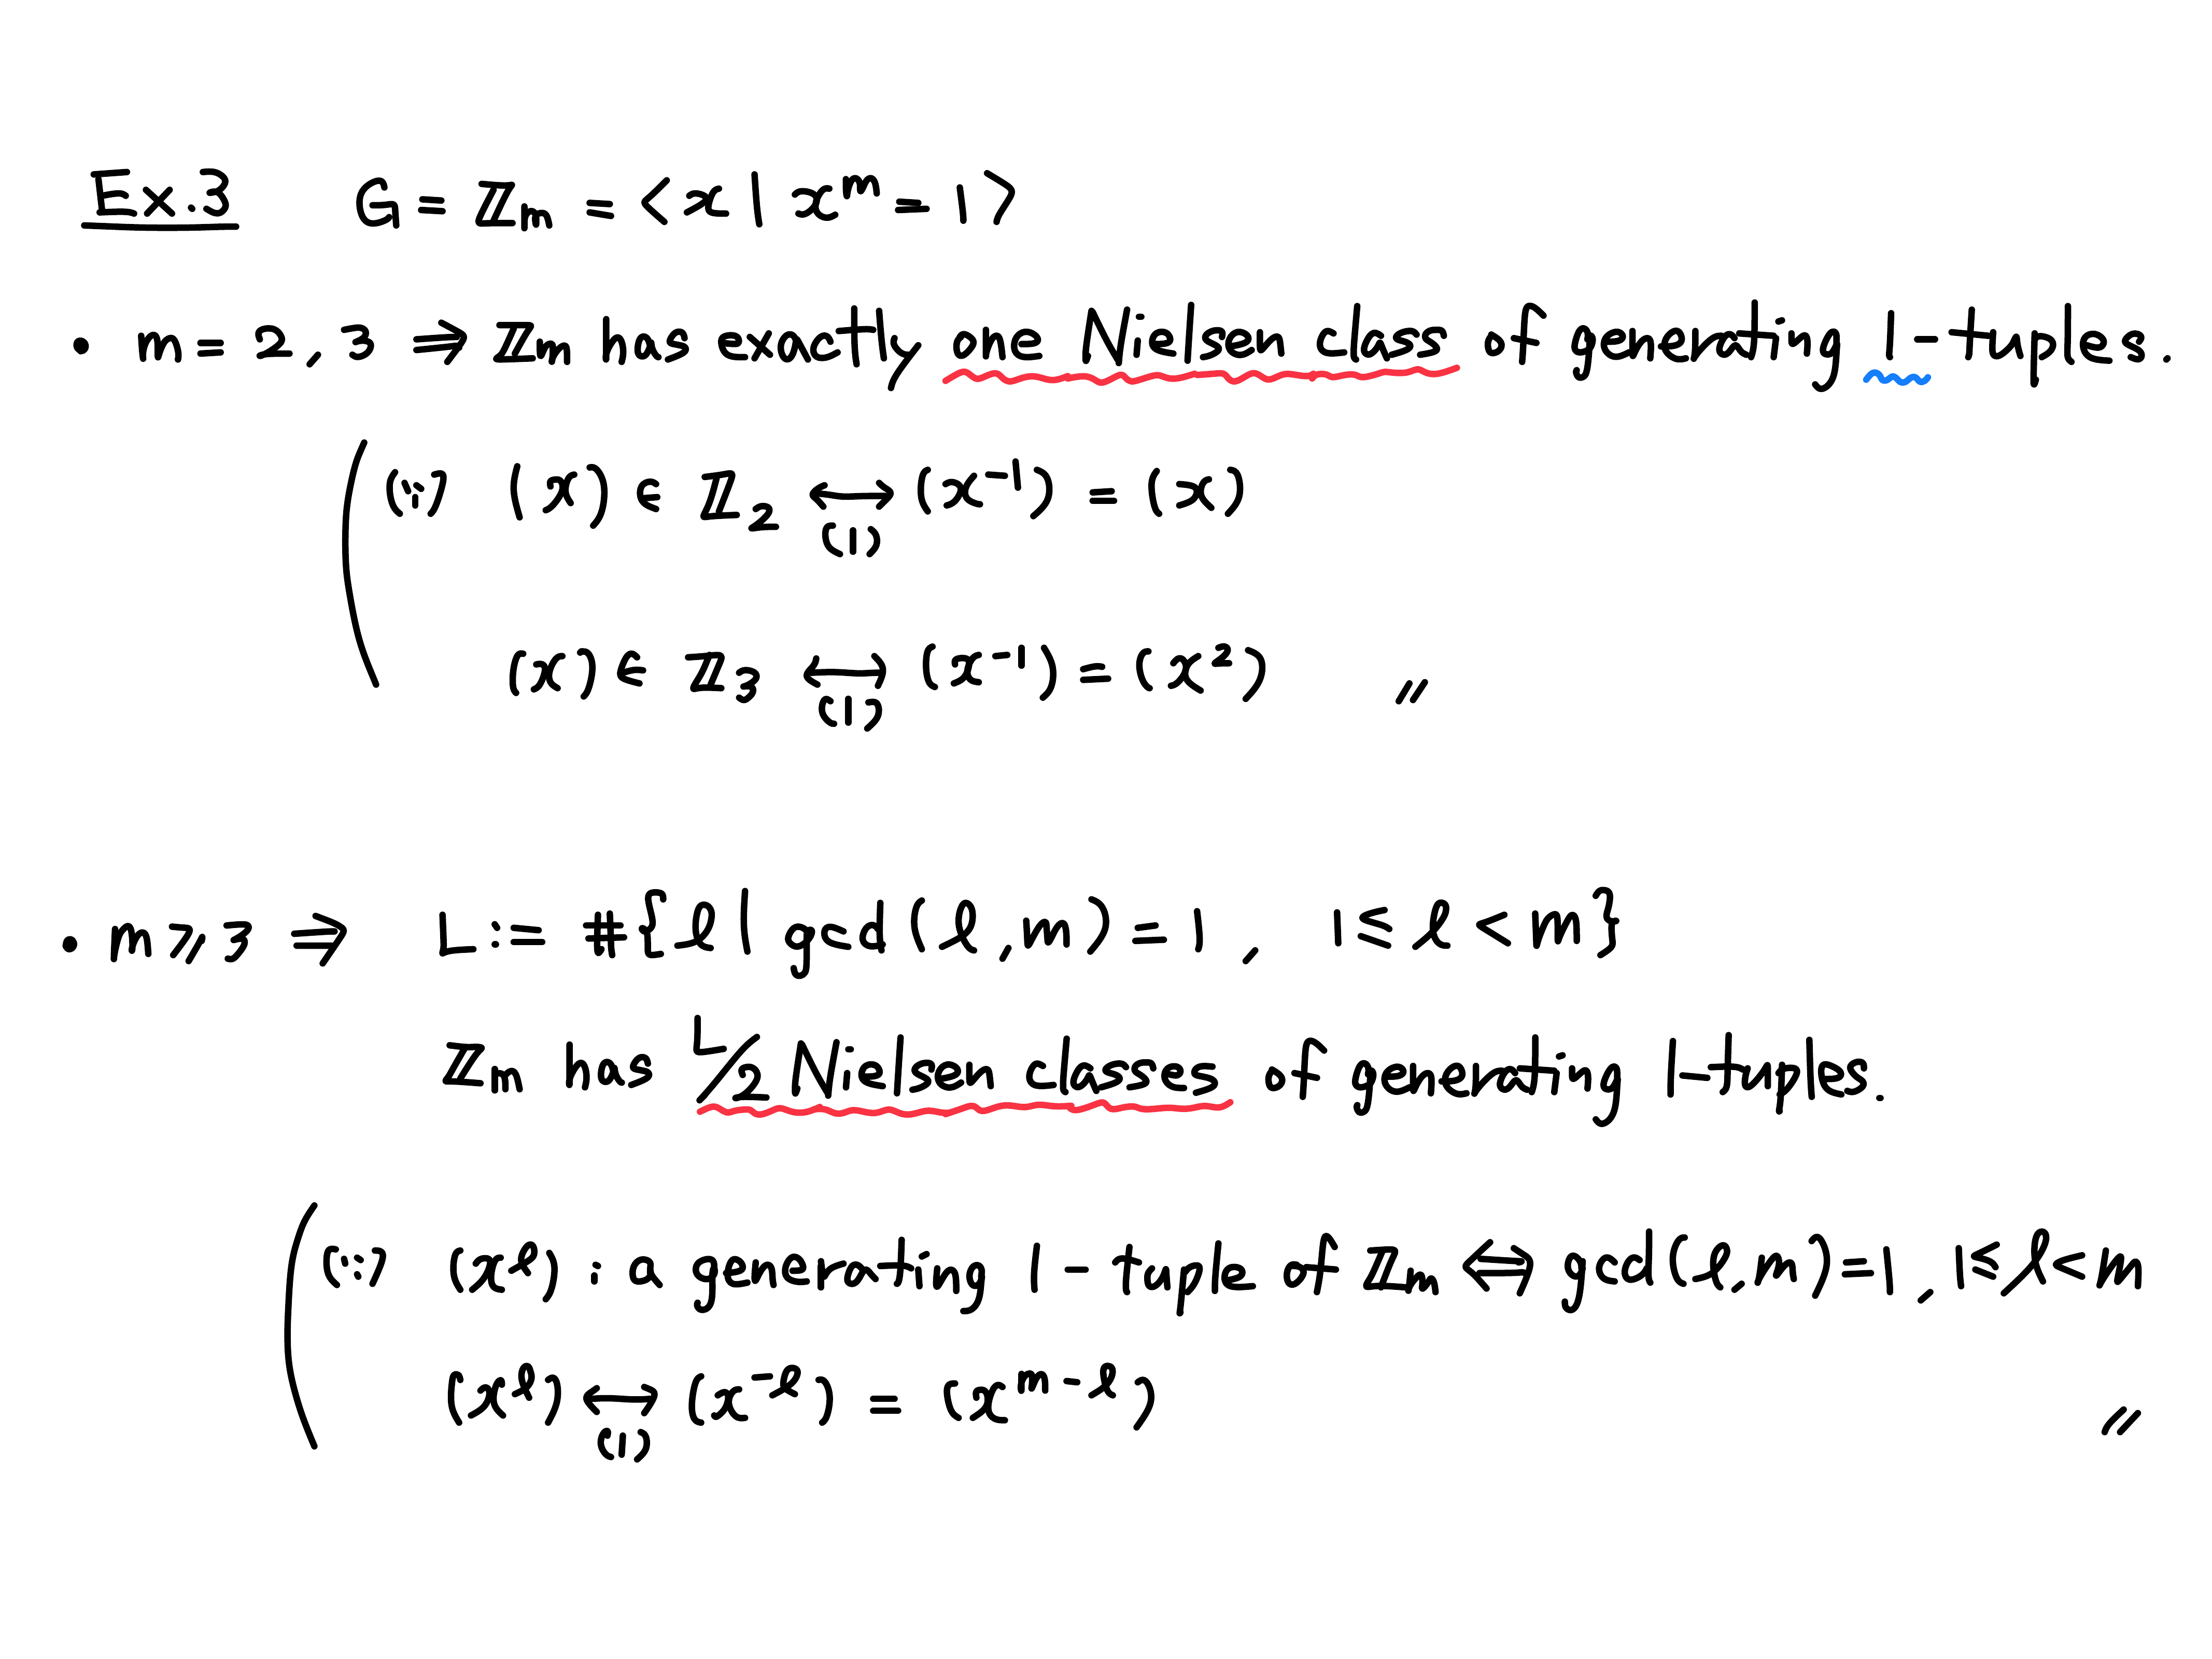 Ex.3 G = ℤₘ = < x | xᵐ = 1 >
• m = 2, 3 ⇒ ℤₘ has exactly one Nielsen class of generating 1-tuples.
(∵) (x) ∈ ℤ₂ ⟷₍₁₎ (x⁻¹) = (x)
(x) ∈ ℤ₃ ⟷₍₁₎ (x⁻¹) = (x²) //
• m ⩾ 3 ⇒ L := #{ℓ | gcd(ℓ, m) = 1, 1 ≤ ℓ < m}
ℤₘ has L/2 Nielsen classes of generating 1-tuples.
(∵) (x^ℓ) : a generating 1-tuple of ℤₘ ⇔ gcd(ℓ, m) = 1, 1 ≤ ℓ < m
(x^ℓ) ⟷₍₁₎ (x^{-ℓ}) = (x^{m-ℓ}) //